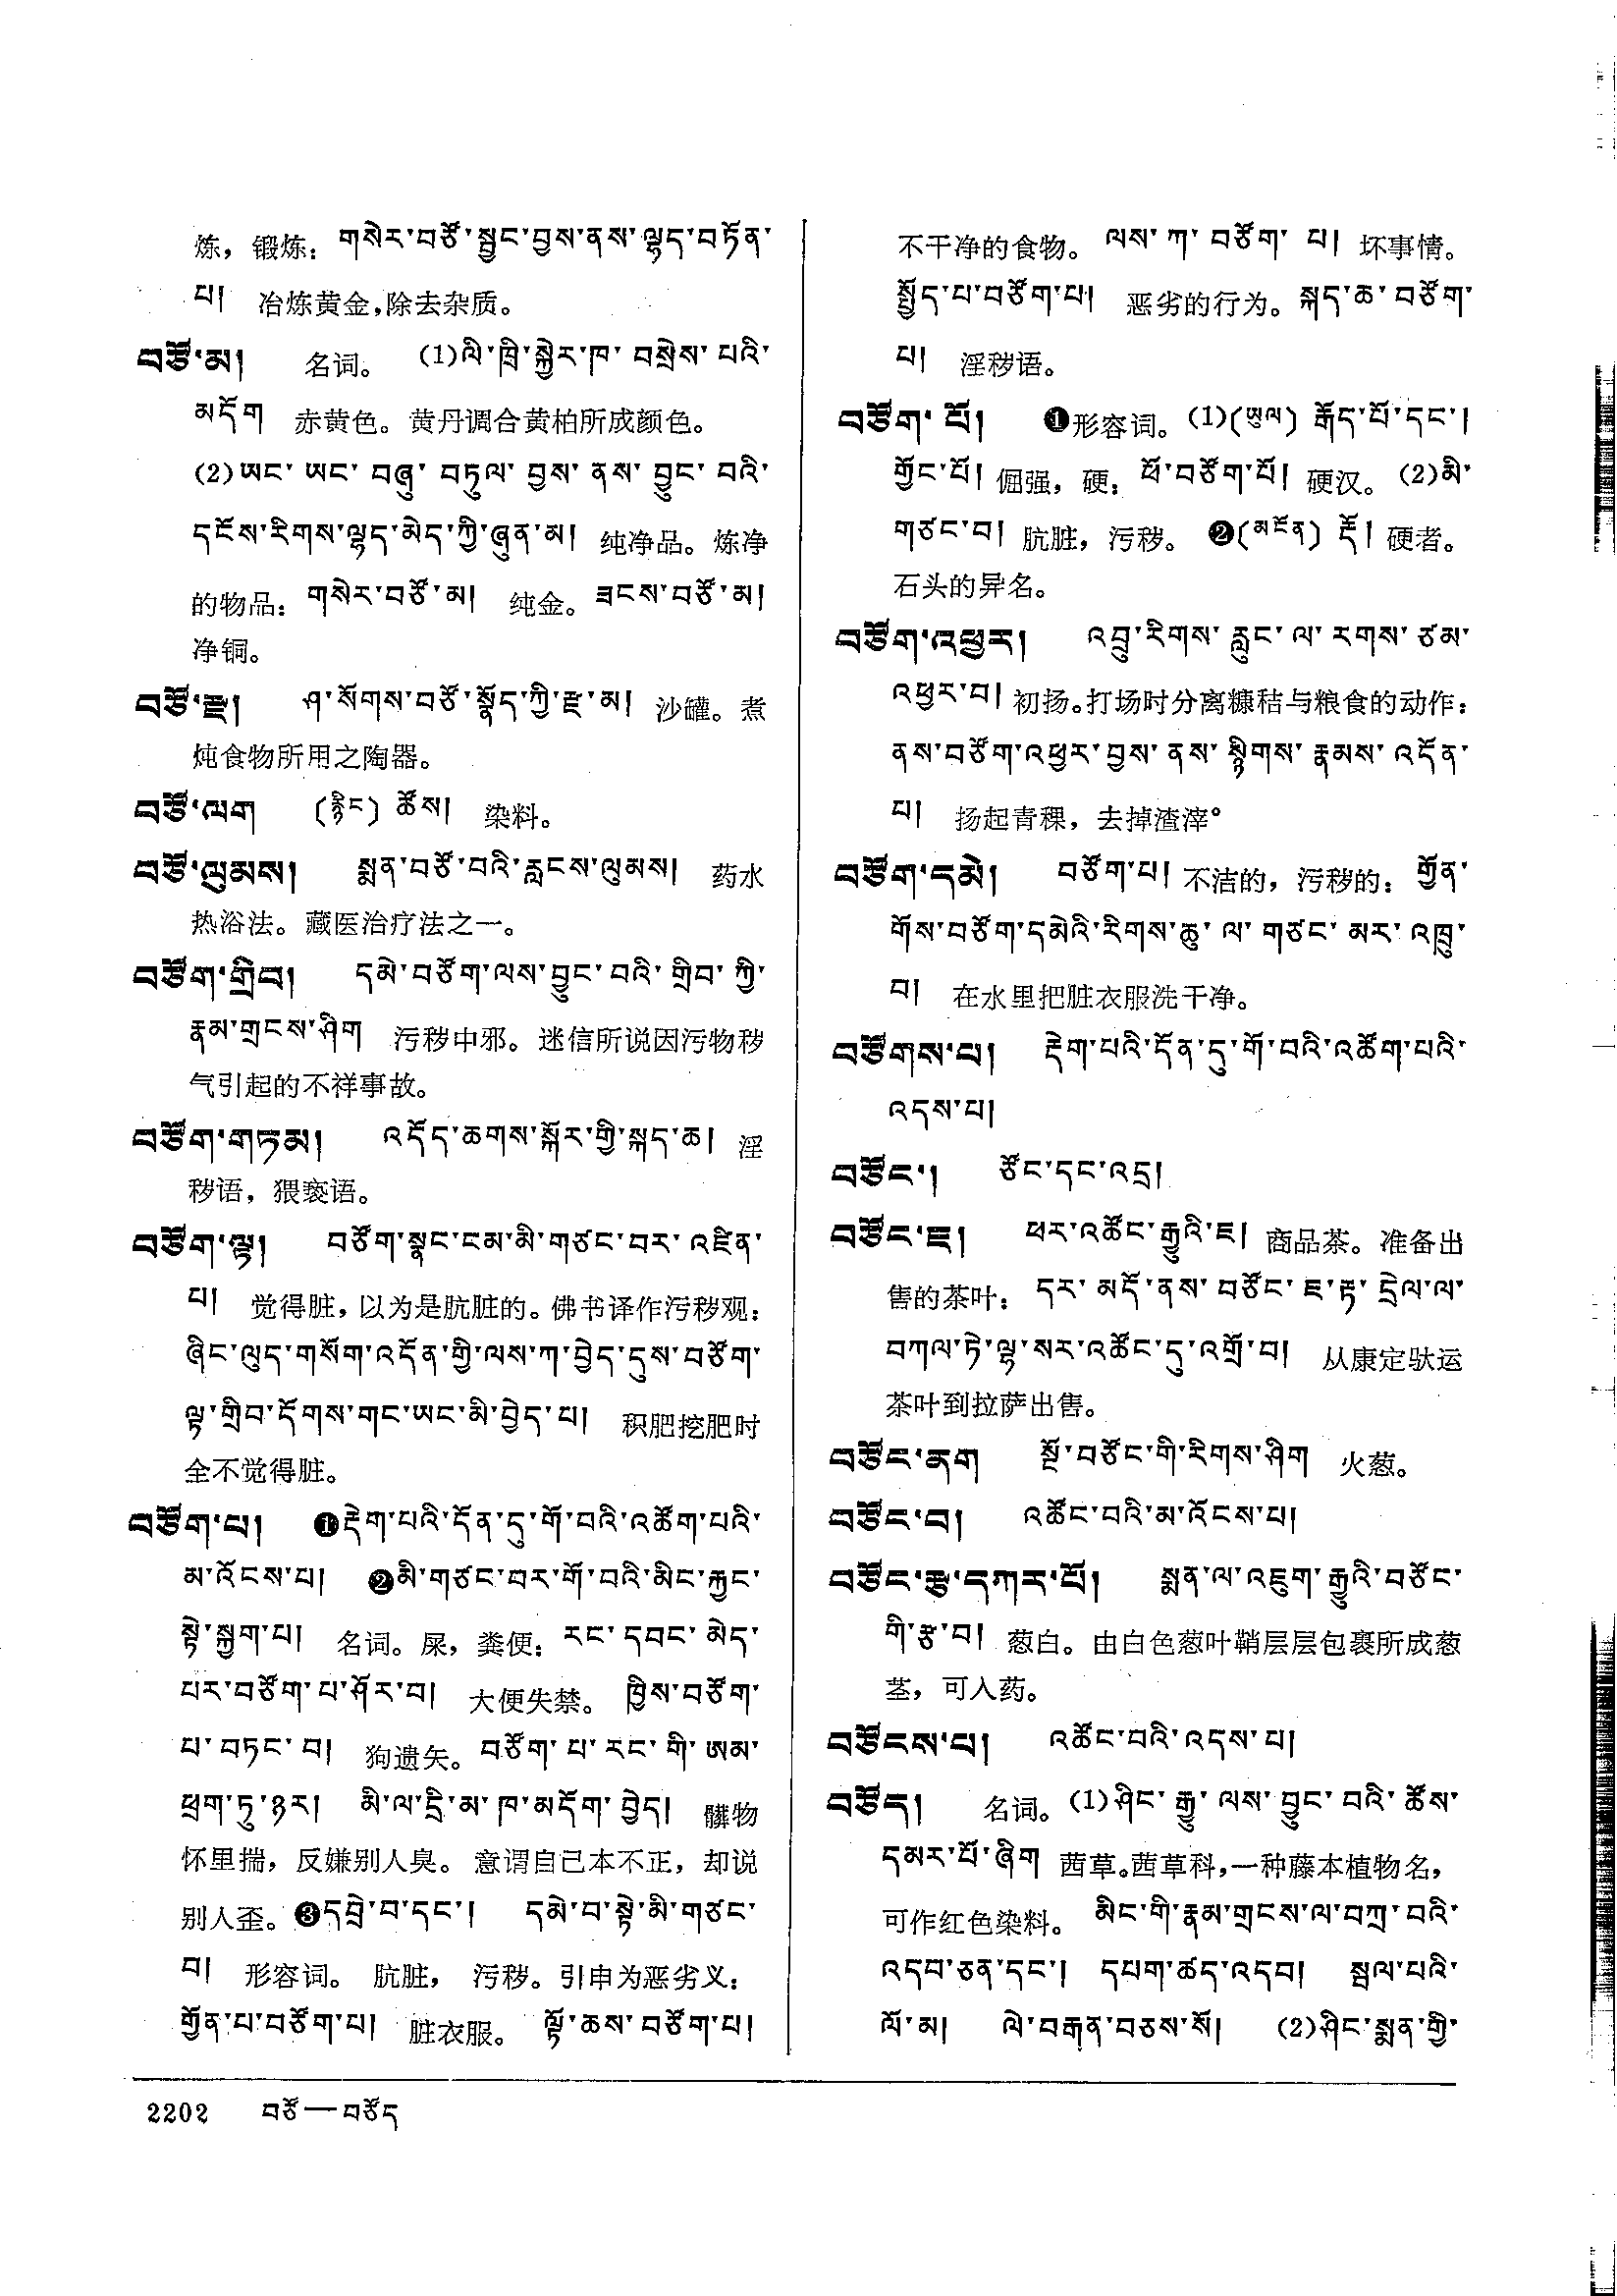 炼，锻炼：གསེར་བཙོ་སྦྱང་བྱས་ནས་ལྷད་བཏོན་
པ།  冶炼黄金，除去杂质。
བཙོ་མ།  名词。 (1)ལི་ཁྲི་སྐྱེར་ཁ་བསྲེས་པའི་
མདོག  赤黄色。黄丹调合黄柏所成颜色。
(2)ཡང་ཡང་བཞུ་བཏུལ་བྱས་ནས་བྱུང་བའི་
དངོས་རིགས་ལྷད་མེད་ཀྱི་ཞུན་མ།  纯净品。炼净
的物品：གསེར་བཙོ་མ།  纯金。ཟངས་བཙོ་མ།
净铜。
བཙོ་རྫ།  ཤ་སོགས་བཙོ་སྣོད་ཀྱི་རྫ་མ།  沙罐。煮
炖食物所用之陶器。
བཙོ་ལག  (རྙིང) ཚོས།  染料。
བཙོ་ལུམས།  སྨན་བཙོ་བའི་རླངས་ལུམས།  药水
热浴法。藏医治疗法之一。
བཙོག་གྲིབ།  དམེ་བཙོག་ལས་བྱུང་བའི་གྲིབ་ཀྱི་
རྣམ་གྲངས་ཤིག  污秽中邪。迷信所说因污物秽
气引起的不祥事故。
བཙོག་གཏམ།  འདོད་ཆགས་སྐོར་གྱི་སྐད་ཆ།  淫
秽语，猥亵语。
བཙོག་ལྟ།  བཙོག་སྣང་ངམ་མི་གཙང་བར་འཛིན་
པ།  觉得脏，以为是肮脏的。佛书译作污秽观：
ཞིང་ལུད་གསོག་འདོན་གྱི་ལས་ཀ་བྱེད་དུས་བཙོག་
ལྟ་གྲིབ་དོགས་གང་ཡང་མི་བྱེད་པ།  积肥挖肥时
全不觉得脏。
བཙོག་པ།  ❶རྡེག་པའི་དོན་དུ་གོ་བའི་འཚོག་པའི་
མ་འོངས་པ།  ❷མི་གཙང་བར་གོ་བའི་མིང་རྐྱང་
སྟེ་སྐྱག་པ།  名词。屎，粪便：རང་དབང་མེད་
པར་བཙོག་པ་ཤོར་བ།  大便失禁。ཁྱིས་བཙོག་
པ་བཏང་བ།  狗遗矢。བཙོག་པ་རང་གི་ཨམ་
ཕྲག་ཏུ་ཉར།  མི་ལ་དྲི་མ་ཁ་མདོག་བྱེད།  髒物
怀里揣，反嫌别人臭。意谓自己本不正，却说
别人歪。❸དབྲེ་བ་དང་།  དམེ་བ་སྟེ་མི་གཙང་
བ།  形容词。 肮脏， 污秽。引申为恶劣义：
གྱོན་པ་བཙོག་པ།  脏衣服。 ལྟོ་ཆས་བཙོག་པ།
不干净的食物。ལས་ཀ་བཙོག་པ།  坏事情。
སྤྱོད་པ་བཙོག་པ།  恶劣的行为。སྐད་ཆ་བཙོག་
པ།  淫秽语。
བཙོག་པོ།  ❶形容词。(1)(ཡུལ) རྒོད་པོ་དང་།
གྱོང་པོ། 倔强，硬：ཕོ་བཙོག་པོ། 硬汉。(2)མི་
གཙང་བ། 肮脏，污秽。 ❷(མངོན) རྡོ། 硬者。
石头的异名。
བཙོག་འཕྱར།  འབྲུ་རིགས་རླུང་ལ་རགས་ཙམ་
འཕྱར་བ། 初扬。打场时分离糠秸与粮食的动作：
ནས་བཙོག་འཕྱར་བྱས་ནས་སྙིགས་རྣམས་འདོན་
པ།  扬起青稞，去掉渣滓。
བཙོག་དམེ།  བཙོག་པ། 不洁的，污秽的：གྱོན་
གོས་བཙོག་དམེའི་རིགས་ཆུ་ལ་གཙང་མར་འཁྲུ་
བ།  在水里把脏衣服洗干净。
བཙོགས་པ།  རྡེག་པའི་དོན་དུ་གོ་བའི་འཚོག་པའི་
འདས་པ།
བཙོང་།  ཙོང་དང་འདྲ།
བཙོང་ཇ།  ཕར་འཚོང་རྒྱུའི་ཇ། 商品茶。准备出
售的茶叶：དར་མདོ་ནས་བཙོང་ཇ་རྟ་དྲེལ་ལ་
བཀལ་ཏེ་ལྷ་སར་འཚོང་དུ་འགྲོ་བ།  从康定驮运
茶叶到拉萨出售。
བཙོང་ནག  སྔོ་བཙོང་གི་རིགས་ཤིག  火葱。
བཙོང་བ།  འཚོང་བའི་མ་འོངས་པ།
བཙོང་རྩ་དཀར་པོ།  སྨན་ལ་འཇུག་རྒྱུའི་བཙོང་
གི་རྩ་བ། 葱白。由白色葱叶鞘层层包裹所成葱
茎，可入药。
བཙོངས་པ།  འཚོང་བའི་འདས་པ།
བཙོད།  名词。(1)ཤིང་རྒྱུ་ལས་བྱུང་བའི་ཚོས་
དམར་པོ་ཞིག 茜草。茜草科，一种藤本植物名，
可作红色染料。 མིང་གི་རྣམ་གྲངས་ལ་བཀྲ་བའི་
འདབ་ཅན་དང་།  དཔག་ཚད་འདབ།  སྦལ་པའི་
ལོ་མ།  ལེ་བརྒན་བཅས་སོ།  (2)ཤིང་སྨན་གྱི་
2202  བཙོ—བཙོད